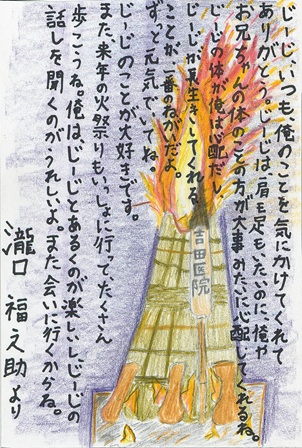 じーじ、いつも、俺のことを気にかけてくれて
ありがとう。じーじは、肩も足もいたいのに、俺や
お兄ちゃんの体のことの方が大事みたいに心配してくれるね。
じーじの体が俺は心配だし、
じーじが長生きしてくれる
ことが一番のねがいだよ。
ずっと元気でいてね。
じーじのことが大好きです。
また来年の火祭りもいっしょに行ってたくさん
歩こうね。俺はじーじとあるくのが楽しいし、じーじの
話しを聞くのがうれしいよ。また会いに行くからね。
瀧口 福之助より
吉田医院